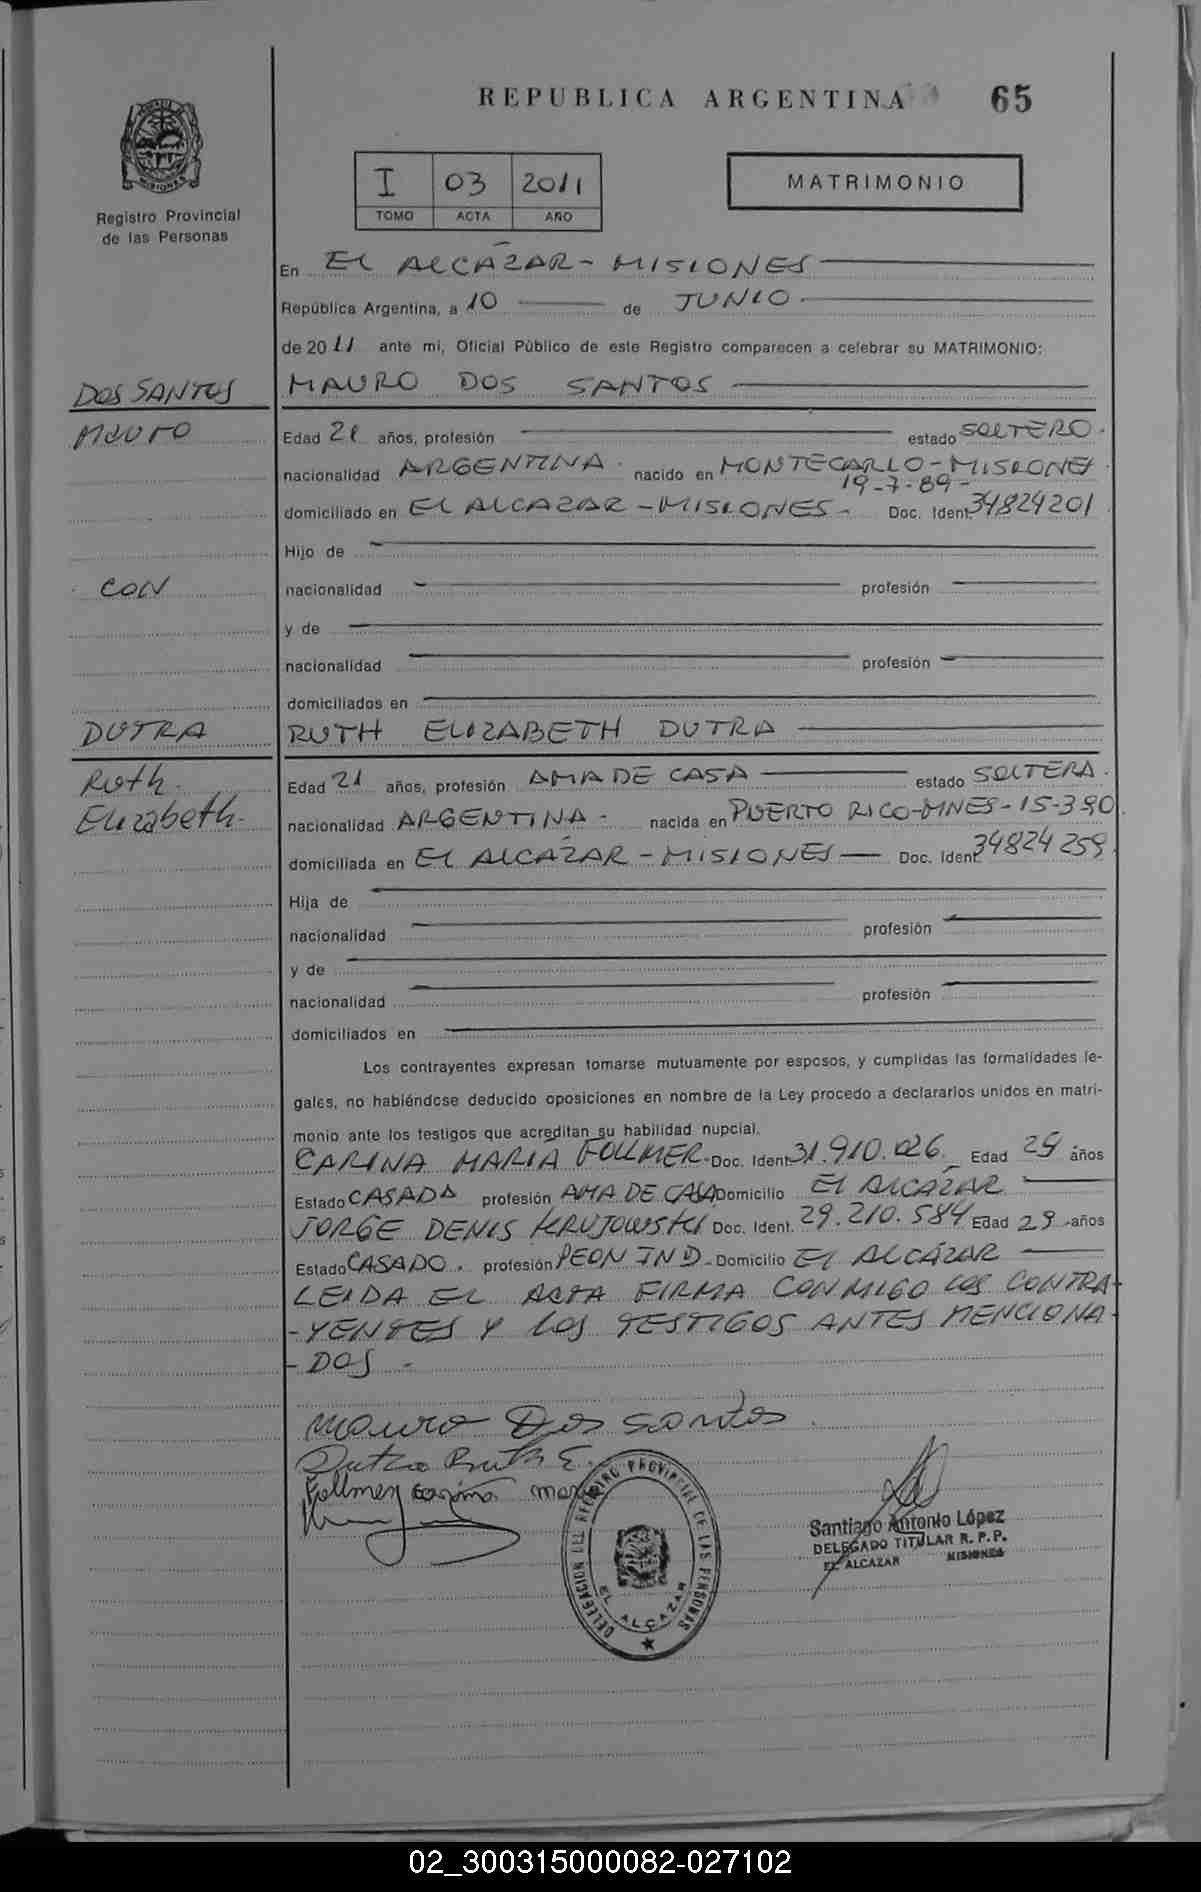 REPUBLICA ARGENTINA 65
MISIONES
Registro Provincial
de las Personas
I 03 2011
TOMO ACTA AÑO
MATRIMONIO
En EL ALCÁZAR - MISIONES
República Argentina, a 10 de JUNIO
de 2011 ante mi, Oficial Público de este Registro comparecen a celebrar su MATRIMONIO:
DOS SANTOS
MAURO DOS SANTOS
Mauro
Edad 21 años, profesión estado SOLTERO.
nacionalidad ARGENTINA. nacido en MONTECARLO - MISIONES
19-7-89-
domiciliado en EL ALCAZAR - MISIONES - Doc. Ident. 34824201
Hijo de
CON
nacionalidad profesión
y de
nacionalidad profesión
domiciliados en
DUTRA
RUTH ELIZABETH DUTRA
Ruth.
Elizabeth.
Edad 21 años, profesión AMA DE CASA estado SOLTERA.
nacionalidad ARGENTINA - nacida en PUERTO RICO-MNES-15-3-90
domiciliada en EL ALCÁZAR - MISIONES - Doc. Ident. 34824259.
Hija de
nacionalidad profesión
y de
nacionalidad profesión
domiciliados en
Los contrayentes expresan tomarse mutuamente por esposos, y cumplidas las formalidades le-
gales, no habiéndose deducido oposiciones en nombre de la Ley procedo a declararlos unidos en matri-
monio ante los testigos que acreditan su habilidad nupcial.
CARINA MARIA FOLLMER - Doc. Ident. 31.910.026. Edad 25 años
Estado CASADA profesión AMA DE CASA Domicilio El ALCÁZAR
JORGE DENIS KRUJOWSKI Doc. Ident. 29.210.584 Edad 29 años
Estado CASADO. profesión PEON IND. Domicilio El ALCÁZAR
LEIDA EL ACTA FIRMA CONMIGO LOS CONTRA-
-YENTES Y LOS TESTIGOS ANTES MENCIONA-
-DOS -
Mauro Dos Santos
Dutra Ruth E.
Follmer Carina Maria
DELEGACION DEL REGISTRO PROVINCIAL DE LAS PERSONAS
EL ALCAZAR
Santiago Antonio López
DELEGADO TITULAR R. P. P.
EL ALCAZAR MISIONES
02_300315000082-027102